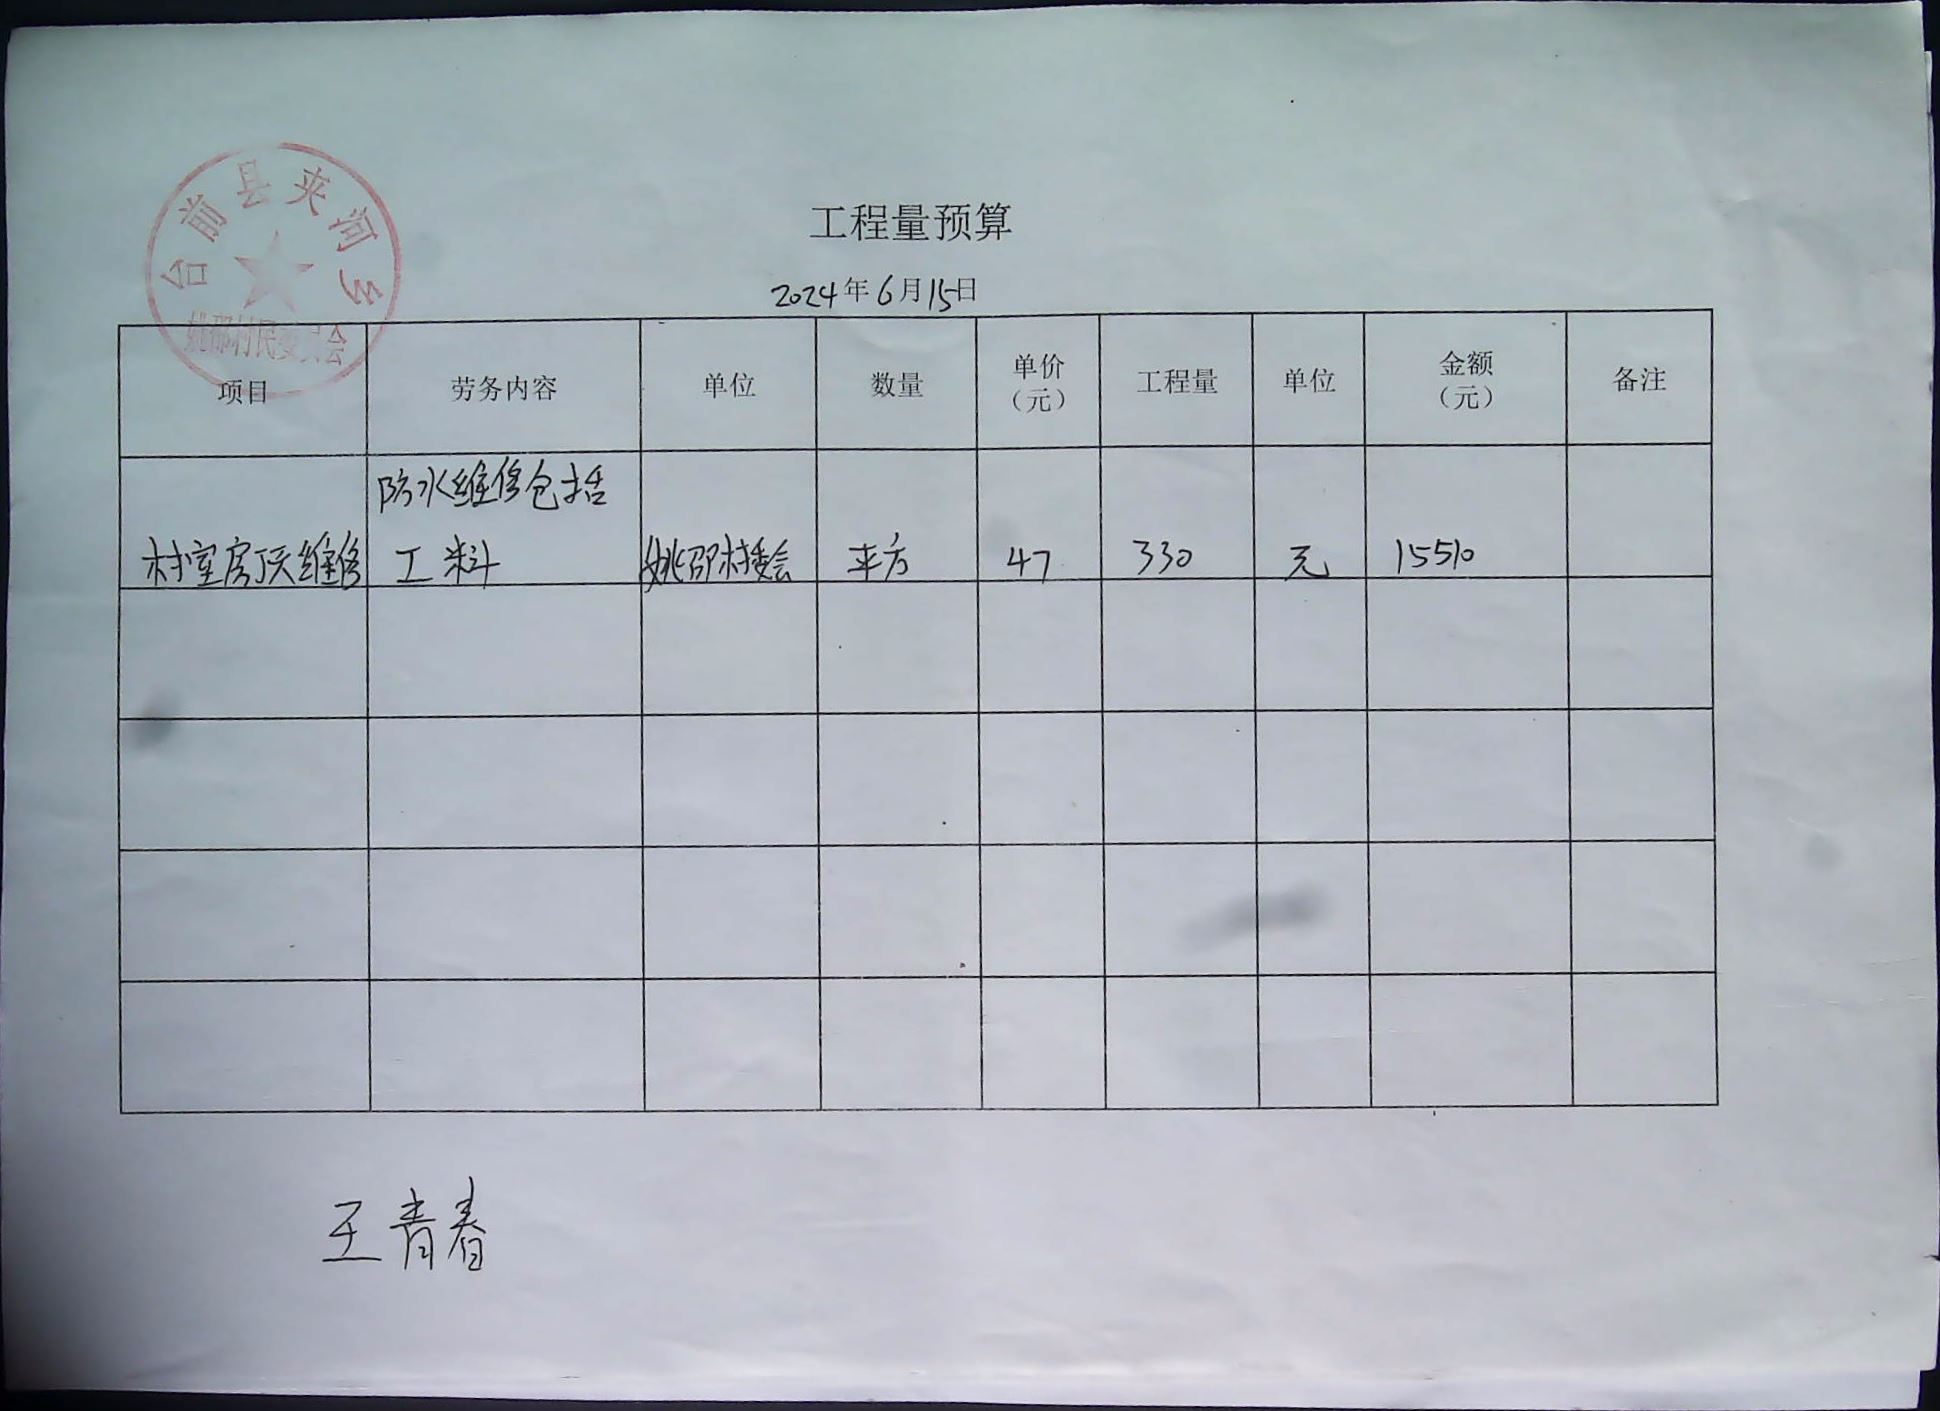 台前县夹河乡
姚邵村民委员会
工程量预算
2024年6月15日
项目 劳务内容 单位 数量 单价（元） 工程量 单位 金额（元） 备注
村室房顶维修 防水维修包括工料 姚邵村委会 平方 47 330 元 15510
王青春